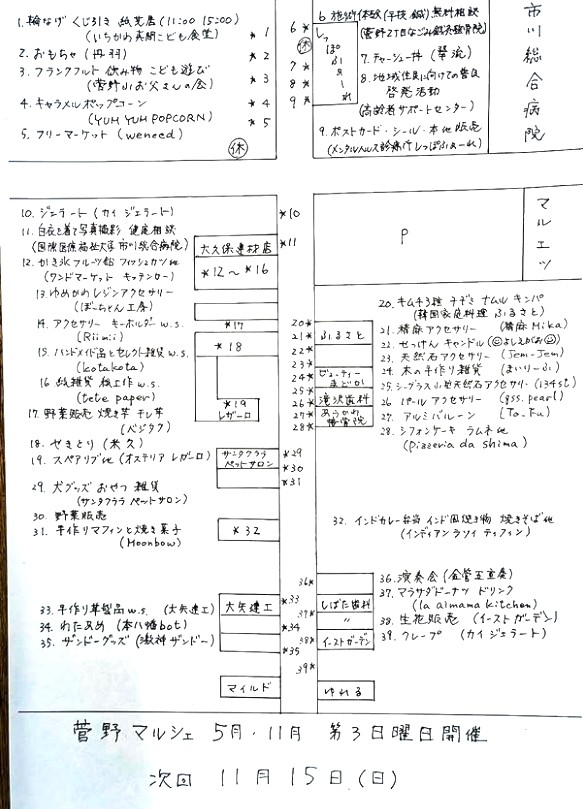 1. 輪なげ くじ引き 紙芝居 (11:00 15:00)
(いちかわ表朝こども食堂)
2. おもちゃ (丹羽)
3. フランクフルト 飲み物 こども遊び
(菅野小お父さんの会)
4. キャラメルポップコーン
(YUM YUM POPCORN)
5. フリーマーケット (weneed)
休
*1
*2
*3
*4
*5
6*
休
7*
8*
9*
しっぽふぁーれ
6. 施術体験 (手技・鍼) 無料相談
(菅野2丁目なごみ鍼灸整骨院)
7. チャーシュー丼 (華流)
8. 地域住民に向けての普及
啓発活動
(高齢者サポートセンター)
9. ポストカード・シール・本他販売
(メンタルヘルス診療所しっぽふぁーれ)
市川総合病院
10. ジェラート (カイ ジェラート)
11. 白衣を着て写真撮影 健康相談
(国際医療福祉大学 市川総合病院)
12. かき氷 フルーツ飴 フィッシュカツ他
(ワンドマーケット キッチンカー)
13. ゆめかわレジンアクセサリー
(ぼーちゃん工房)
14. アクセサリー キーホルダー w.s.
(Riimii)
15. ハンドメイド品とセレクト雑貨 w.s.
(kotakota)
16. 紙雑貨 紙工作 w.s.
(tete paper)
17. 野菜販売 焼き芋 干し芋
(ベジタク)
18. やきとり (米久)
19. スペアリブ他 (オステリア レガーロ)
29. 犬グッズ おやつ 雑貨
(サンタクララ ペットサロン)
30. 野菜販売
31. 手作りマフィンと焼き菓子
(Moonbow)
33. 手作り革製品 w.s. (大矢建工)
34. わたあめ (本八幡bot)
35. ザンドーグッズ (激神ザンドー)
*10
*11
大久保建材店
*12~*16
*17
*18
*19
レガーロ
サンタクララ
ペットサロン
*29
*30
*31
*32
大矢建工
*33
*34
*35
マイルド
P
マルエツ
20*
21*
22*
23*
24*
25*
26*
27*
28*
ふるさと
ビューティー
まどか
滝沢歯科
あらかわ
整骨院
20. キムチ3種 チヂミ ナムル キンパ
(韓国家庭料理 ふるさと)
21. 精麻アクセサリー (精麻Mika)
22. せっけん キャンドル (よしえがお)
23. 天然石アクセサリー (Jem-Jem)
24. 木の手作り雑貨 (まいりーふ)
25. シーグラス 小枝 天然石アクセサリー (134st)
26. パールアクセサリー (gss.pearl)
27. アルミバルーン (To_Fu)
28. シフォンケーキ ラムネ他
(Pizzeria da shima)
32. インドカレー弁当 インド風焼き物 焼きそば他
(インディアンラソイ ティフィン)
36*
37*
38*
39*
しばた歯科
〃
イーストガーデン
ゆれる
36. 演奏会 (金管五重奏)
37. マラサダドーナツ ドリンク
(la almama kitchen)
38. 生花販売 (イーストガーデン)
39. クレープ (カイ ジェラート)
菅野マルシェ 5月・11月 第3日曜日開催
次回 11月15日(日)